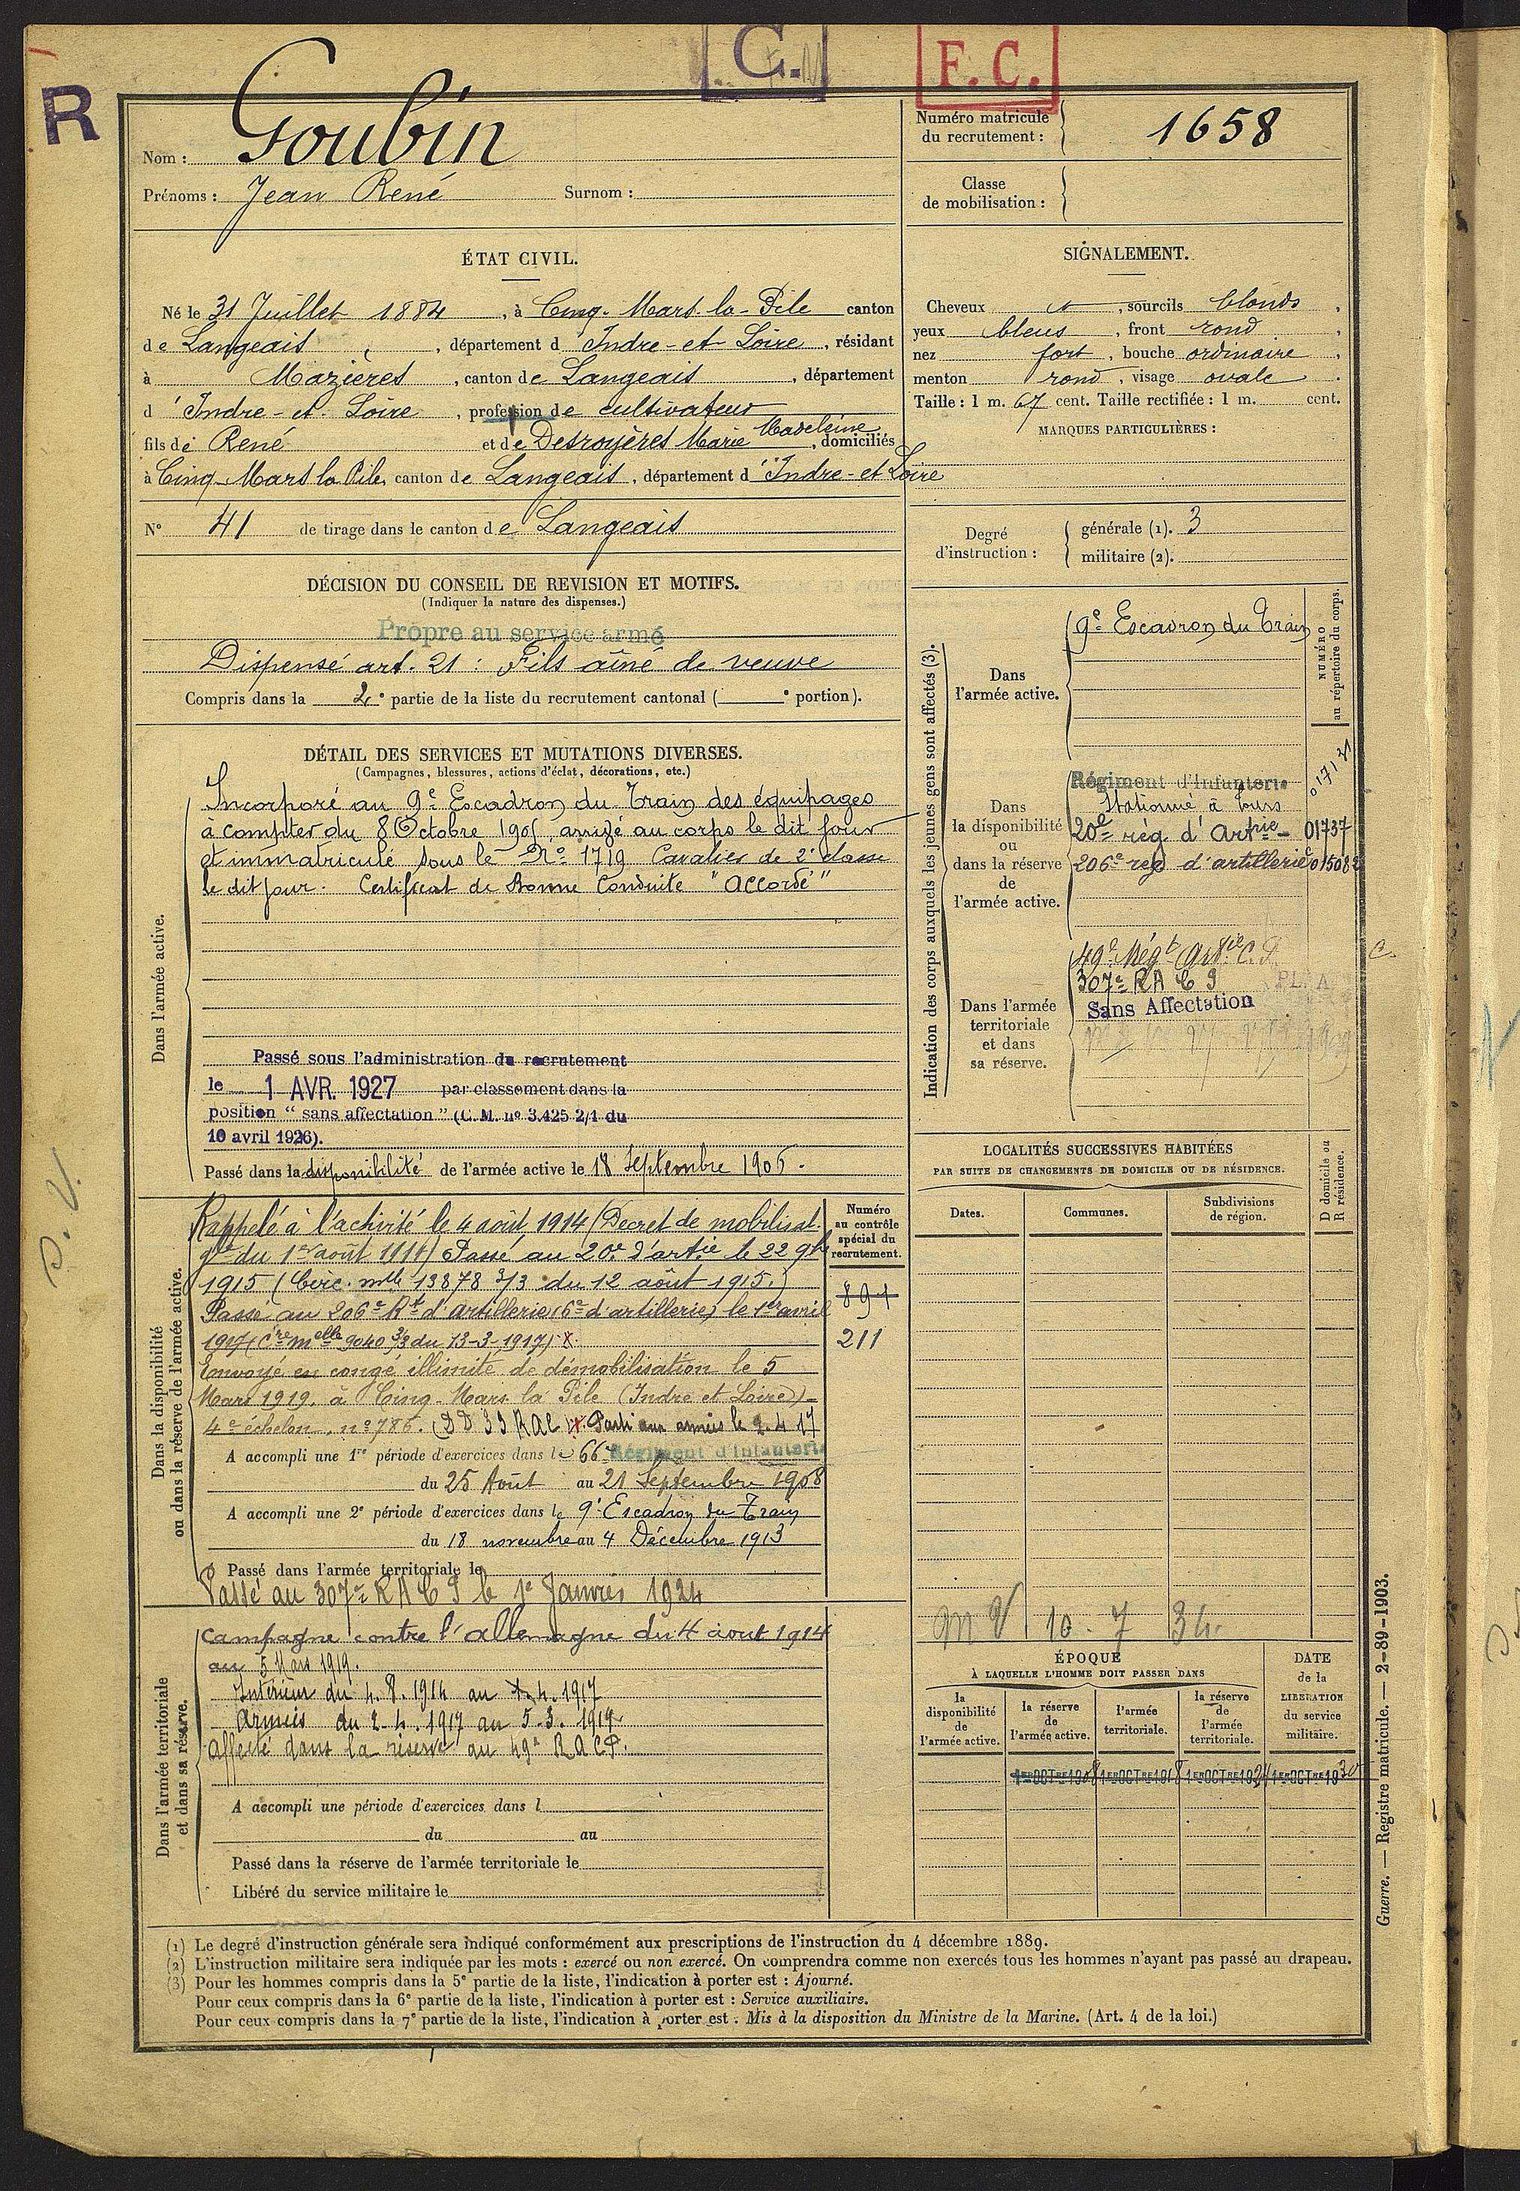 R
C.
F. C.
Nom : Goubin
Prénoms : Jean René Surnom :
Numéro matricule du recrutement : 1658
Classe de mobilisation :
ÉTAT CIVIL.
Né le 31 Juillet 1884, à Cinq-Mars-la-Pile canton
de Langeais, département d'Indre-et-Loire, résidant
à Mazières, canton de Langeais, département
d'Indre-et-Loire, profession de cultivateur
fils de René et de Desroyères Marie Madeleine, domiciliés
à Cinq-Mars la Pile, canton de Langeais, département d'Indre-et-Loire
N° 41 de tirage dans le canton de Langeais
SIGNALEMENT.
Cheveux et, sourcils blonds,
yeux bleus, front rond,
nez fort, bouche ordinaire,
menton rond, visage ovale.
Taille : 1 m. 67 cent. Taille rectifiée : 1 m. cent.
MARQUES PARTICULIÈRES :
Degré d'instruction :
générale (1). 3
militaire (2).
DÉCISION DU CONSEIL DE REVISION ET MOTIFS.
(Indiquer la nature des dispenses.)
Propre au service armé
Dispensé art. 21 : Fils aîné de veuve
Compris dans la 2e partie de la liste du recrutement cantonal ( e portion).
DÉTAIL DES SERVICES ET MUTATIONS DIVERSES.
(Campagnes, blessures, actions d'éclat, décorations, etc.)
Dans l'armée active.
Incorporé au 9e Escadron du Train des équipages
à compter du 8 Octobre 1905, arrivé au corps le dit jour
et immatriculé sous le No 1719 Cavalier de 2e classe
le dit jour. Certificat de Bonne Conduite "Accordé"
Passé sous l'administration du recrutement
le 1 AVR. 1927 par classement dans la
position "sans affectation" (C. M. no 3.425 2/1 du
10 avril 1926).
Passé dans la disponibilité de l'armée active le 18 Septembre 1906.
Dans la disponibilité ou dans la réserve de l'armée active.
Rappelé à l'activité le 4 août 1914 (Decret de mobilisat.
gle du 1er août 1914) Passé au 20e d'artie le 22 9bre
1915 (Circ. mlle 13878 3/3 du 12 août 1915.)
Passé au 206e Rt d'artillerie (6e d'artillerie) le 1er avril
1917 (Cre melle 9040 3/3 du 13-3-1917) x
Envoyé en congé illimité de démobilisation le 5
Mars 1919, à Cinq-Mars la Pile (Indre et Loire)
4e échelon. no 786. x Parti aux armées le 2.4.17
A accompli une 1re période d'exercices dans le 66e Régiment d'Infanterie
du 25 Août au 21 Septembre 1908
A accompli une 2e période d'exercices dans le 9e Escadron du Train
du 18 novembre au 4 Décembre 1913
Passé dans l'armée territoriale le
Passé au 307e RA le 1er Janvier 1924
Numéro au contrôle spécial du recrutement.
891
211
Dans l'armée territoriale et dans sa réserve.
Campagne contre l'allemagne du 4 aout 1914
au 5 Mars 1919.
Intérieur du 4. 8. 1914 au 1. 4. 1917
Armées du 2. 4. 1917 au 5. 3. 1919
Affecté dans la réserve au 49e RACP.
A accompli une période d'exercices dans l
du au
Passé dans la réserve de l'armée territoriale le
Libéré du service militaire le
Indication des corps auxquels les jeunes gens sont affectés (3).
NUMÉRO au répertoire du corps.
Dans l'armée active.
9e Escadron du Train
Dans la disponibilité ou dans la réserve de l'armée active.
Régiment d'Infanterie
Stationné à Tours
20e rég. d'Artrie 01737
206e rég d'artillerie 01508
Dans l'armée territoriale et dans sa réserve.
49e Régt Artie C. P.
307e RA
Sans Affectation
LOCALITÉS SUCCESSIVES HABITÉES
PAR SUITE DE CHANGEMENTS DE DOMICILE OU DE RÉSIDENCE.
Dates.
Communes.
Subdivisions de région.
D domicile ou R résidence.
10. 7 34.
ÉPOQUE
À LAQUELLE L'HOMME DOIT PASSER DANS
la disponibilité de l'armée active.
la réserve de l'armée active.
l'armée territoriale.
la réserve de l'armée territoriale.
DATE de la LIBÉRATION du service militaire.
1er OCTRE 1908 1er OCTRE 1918 1er OCTRE 1924 1er OCTRE 1930
Guerre. — Registre matricule. — 2-89-1903.
(1) Le degré d'instruction générale sera indiqué conformément aux prescriptions de l'instruction du 4 décembre 1889.
(2) L'instruction militaire sera indiquée par les mots : exercé ou non exercé. On comprendra comme non exercés tous les hommes n'ayant pas passé au drapeau.
(3) Pour les hommes compris dans la 5e partie de la liste, l'indication à porter est : Ajourné.
Pour ceux compris dans la 6e partie de la liste, l'indication à porter est : Service auxiliaire.
Pour ceux compris dans la 7e partie de la liste, l'indication à porter est : Mis à la disposition du Ministre de la Marine. (Art. 4 de la loi.)